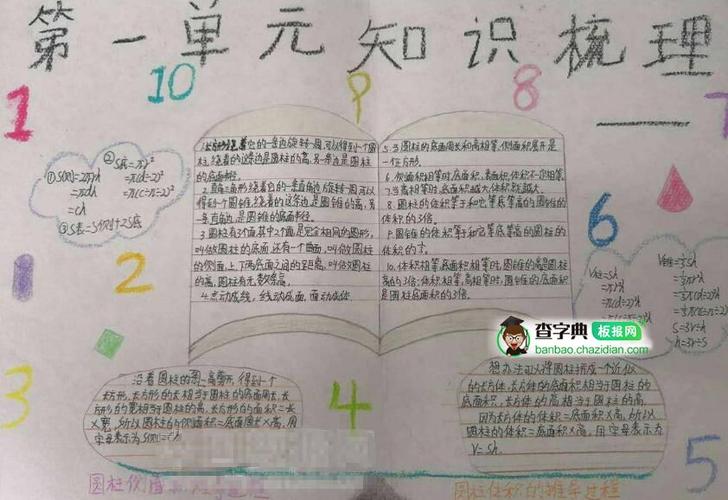 第一单元知识梳理
1
10
9
8
7
①S侧=2πrh
=πdh
=ch
②S底=πr²
=π(d÷2)²
=π(c÷π÷2)²
③S表=S侧+2S底
1.长方形绕着它的一条边旋转一周,可以得到一个圆
柱,绕着的这条边是圆柱的高,另一条边是圆柱
的底面半径。
2.直角三角形绕着它的一条直角边旋转一周可以
得到一个圆锥,绕着的这条边是圆锥的高,另
一条直角边是圆锥的底面半径。
3.圆柱有3个面,其中2个面是完全相同的圆形,
叫做圆柱的底面,还有一个曲面,叫做圆柱
的侧面,上下两底面之间的距离,叫做圆柱
的高,圆柱有无数条高。
4.点动成线,线动成面,面动成体
5.当圆柱的底面周长和高相等,侧面展开是
一个正方形。
6.侧面积相等时,底面积,表面积,体积不一定相等
7.当高相等时,底面积越大体积就越大。
8.圆柱的体积等于和它等底等高的圆锥的
体积的3倍。
9.圆锥的体积等于和它等底等高的圆柱的
体积的
10.体积相等,底面积相等时,圆锥的高是圆柱
高的3倍;体积相等,高相等时,圆锥的底面积
是圆柱底面积的3倍。
6
V柱=Sh
=πr²h
=π(d÷2)²h
V锥=⅓Sh
=⅓πr²h
=⅓π(d÷2)²h
S=3V÷h
h=3V÷S
1
2
3
4
5
查字典 板报网
banbao.chazidian.com
沿着圆柱的高剪开,得到一个
长方形,长方形的长相当于圆柱的底面周长,长
方形的宽相当于圆柱的高,长方形的面积=长
×宽,所以圆柱的侧面积=底面周长×高,用
字母表示为S侧=ch
想办法可以将圆柱拼成一个近似
的长方体,长方体的底面积相当于圆柱的
底面积,长方体的高相当于圆柱的高,
因为长方体的体积=底面积×高,所以
圆柱的体积=底面积×高,用字母表示为
V=Sh.
圆柱侧面
圆柱体积的推导过程